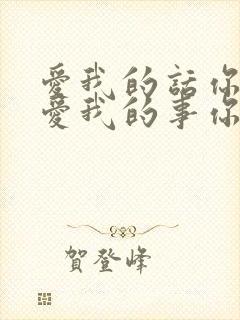 愛我的話你
愛我的事你
賀登峰